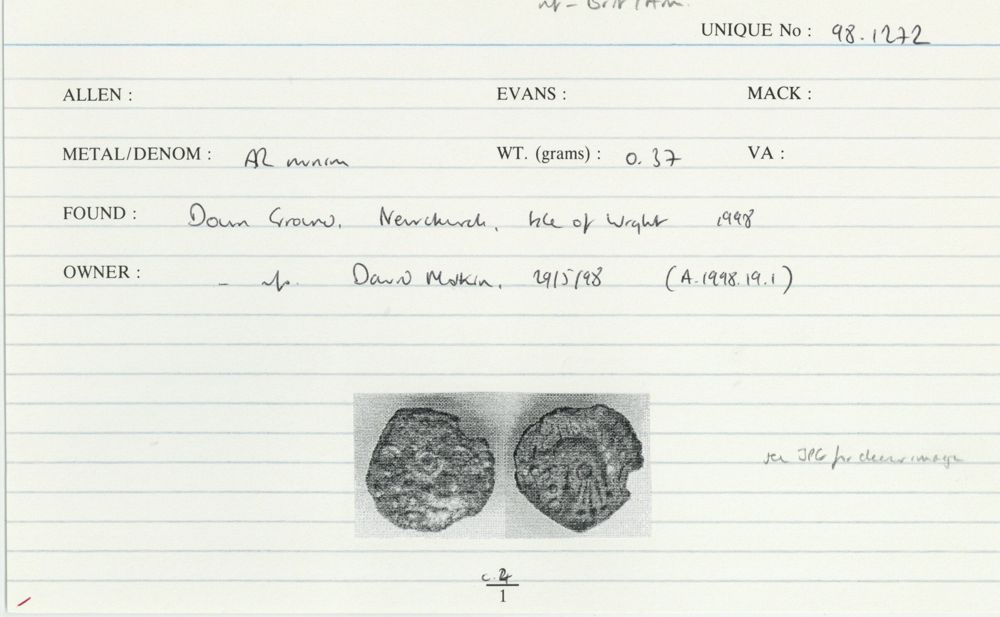 UNIQUE No : 98.1272
ALLEN : EVANS : MACK :
METAL/DENOM : AR minim WT. (grams) : 0.37 VA :
FOUND : Down Ground, Newchurch, Isle of Wight 1998
OWNER : - David Motkin, 29/5/98 (A.1998.19.1)
see JPG for clearer image
c. 2
1